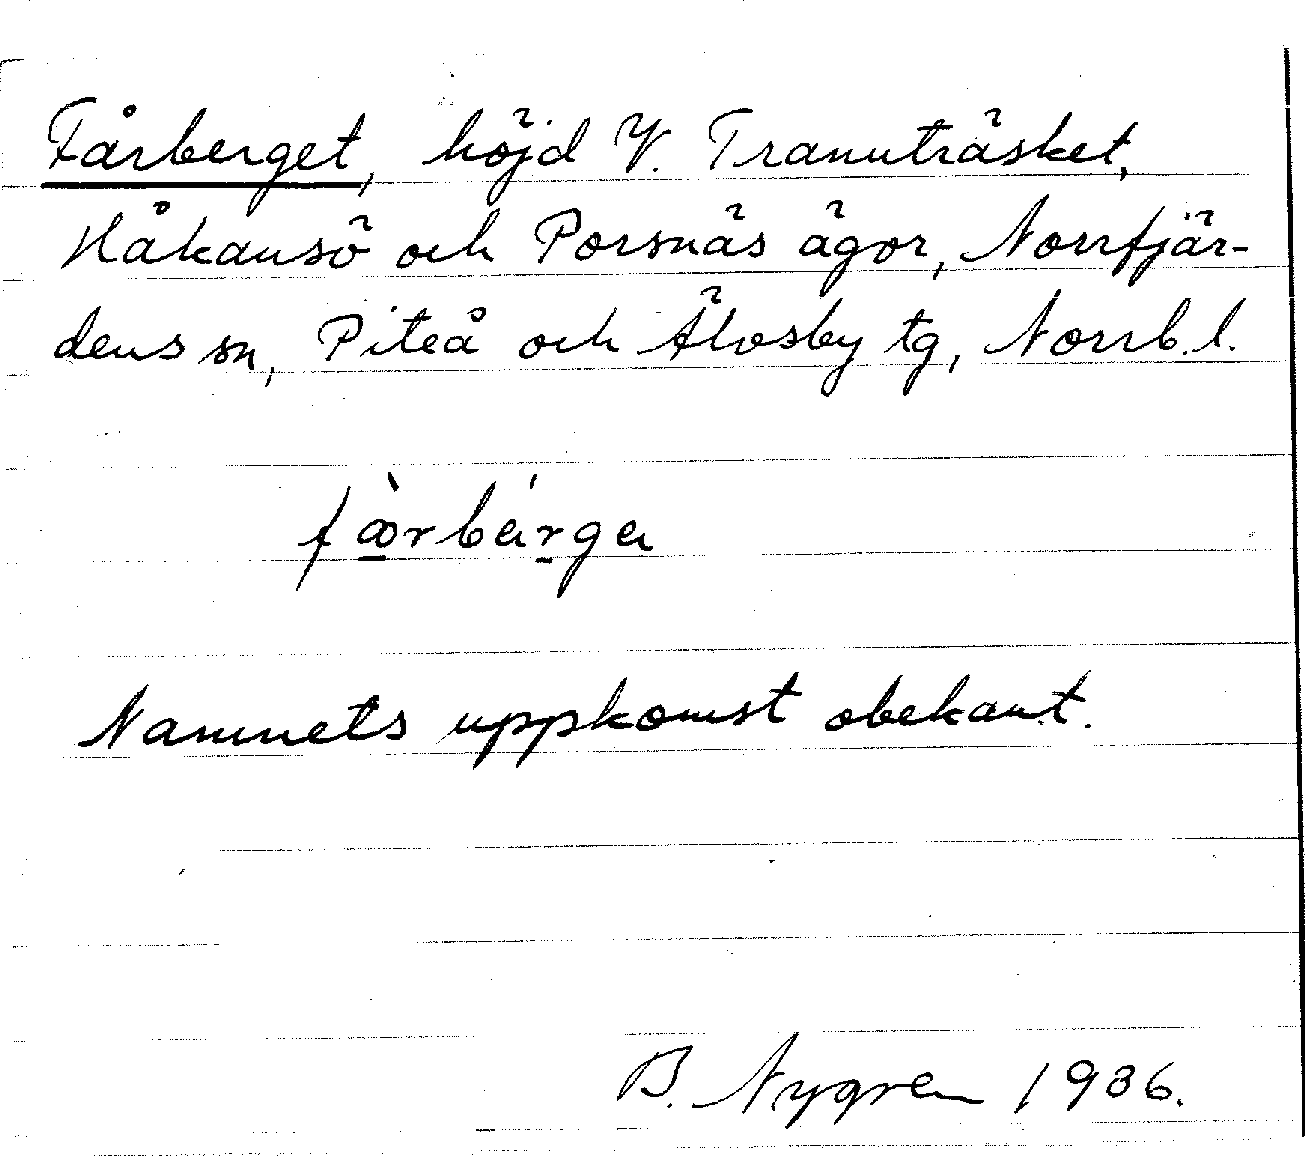 Fårberget, höjd V. Trannträsket,
Håkansö och Porsnäs ägor, Norrfjär-
dens sn, Piteå och Älvsby tg, Norrb. l.
Namnets uppkomst obekant.
B. Nygren 1936.